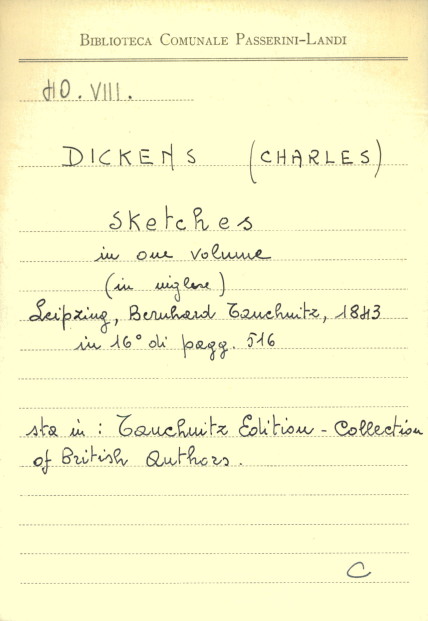 BIBLIOTECA COMUNALE PASSERINI-LANDI
HO. VIII.
DICKENS (CHARLES)
Sketches
in one volume
(in inglese)
Leipzing, Bernhard Tauchnitz, 1843
in 16° di pagg. 516
sta in : Tauchnitz Edition - Collection
of British Authors.
C